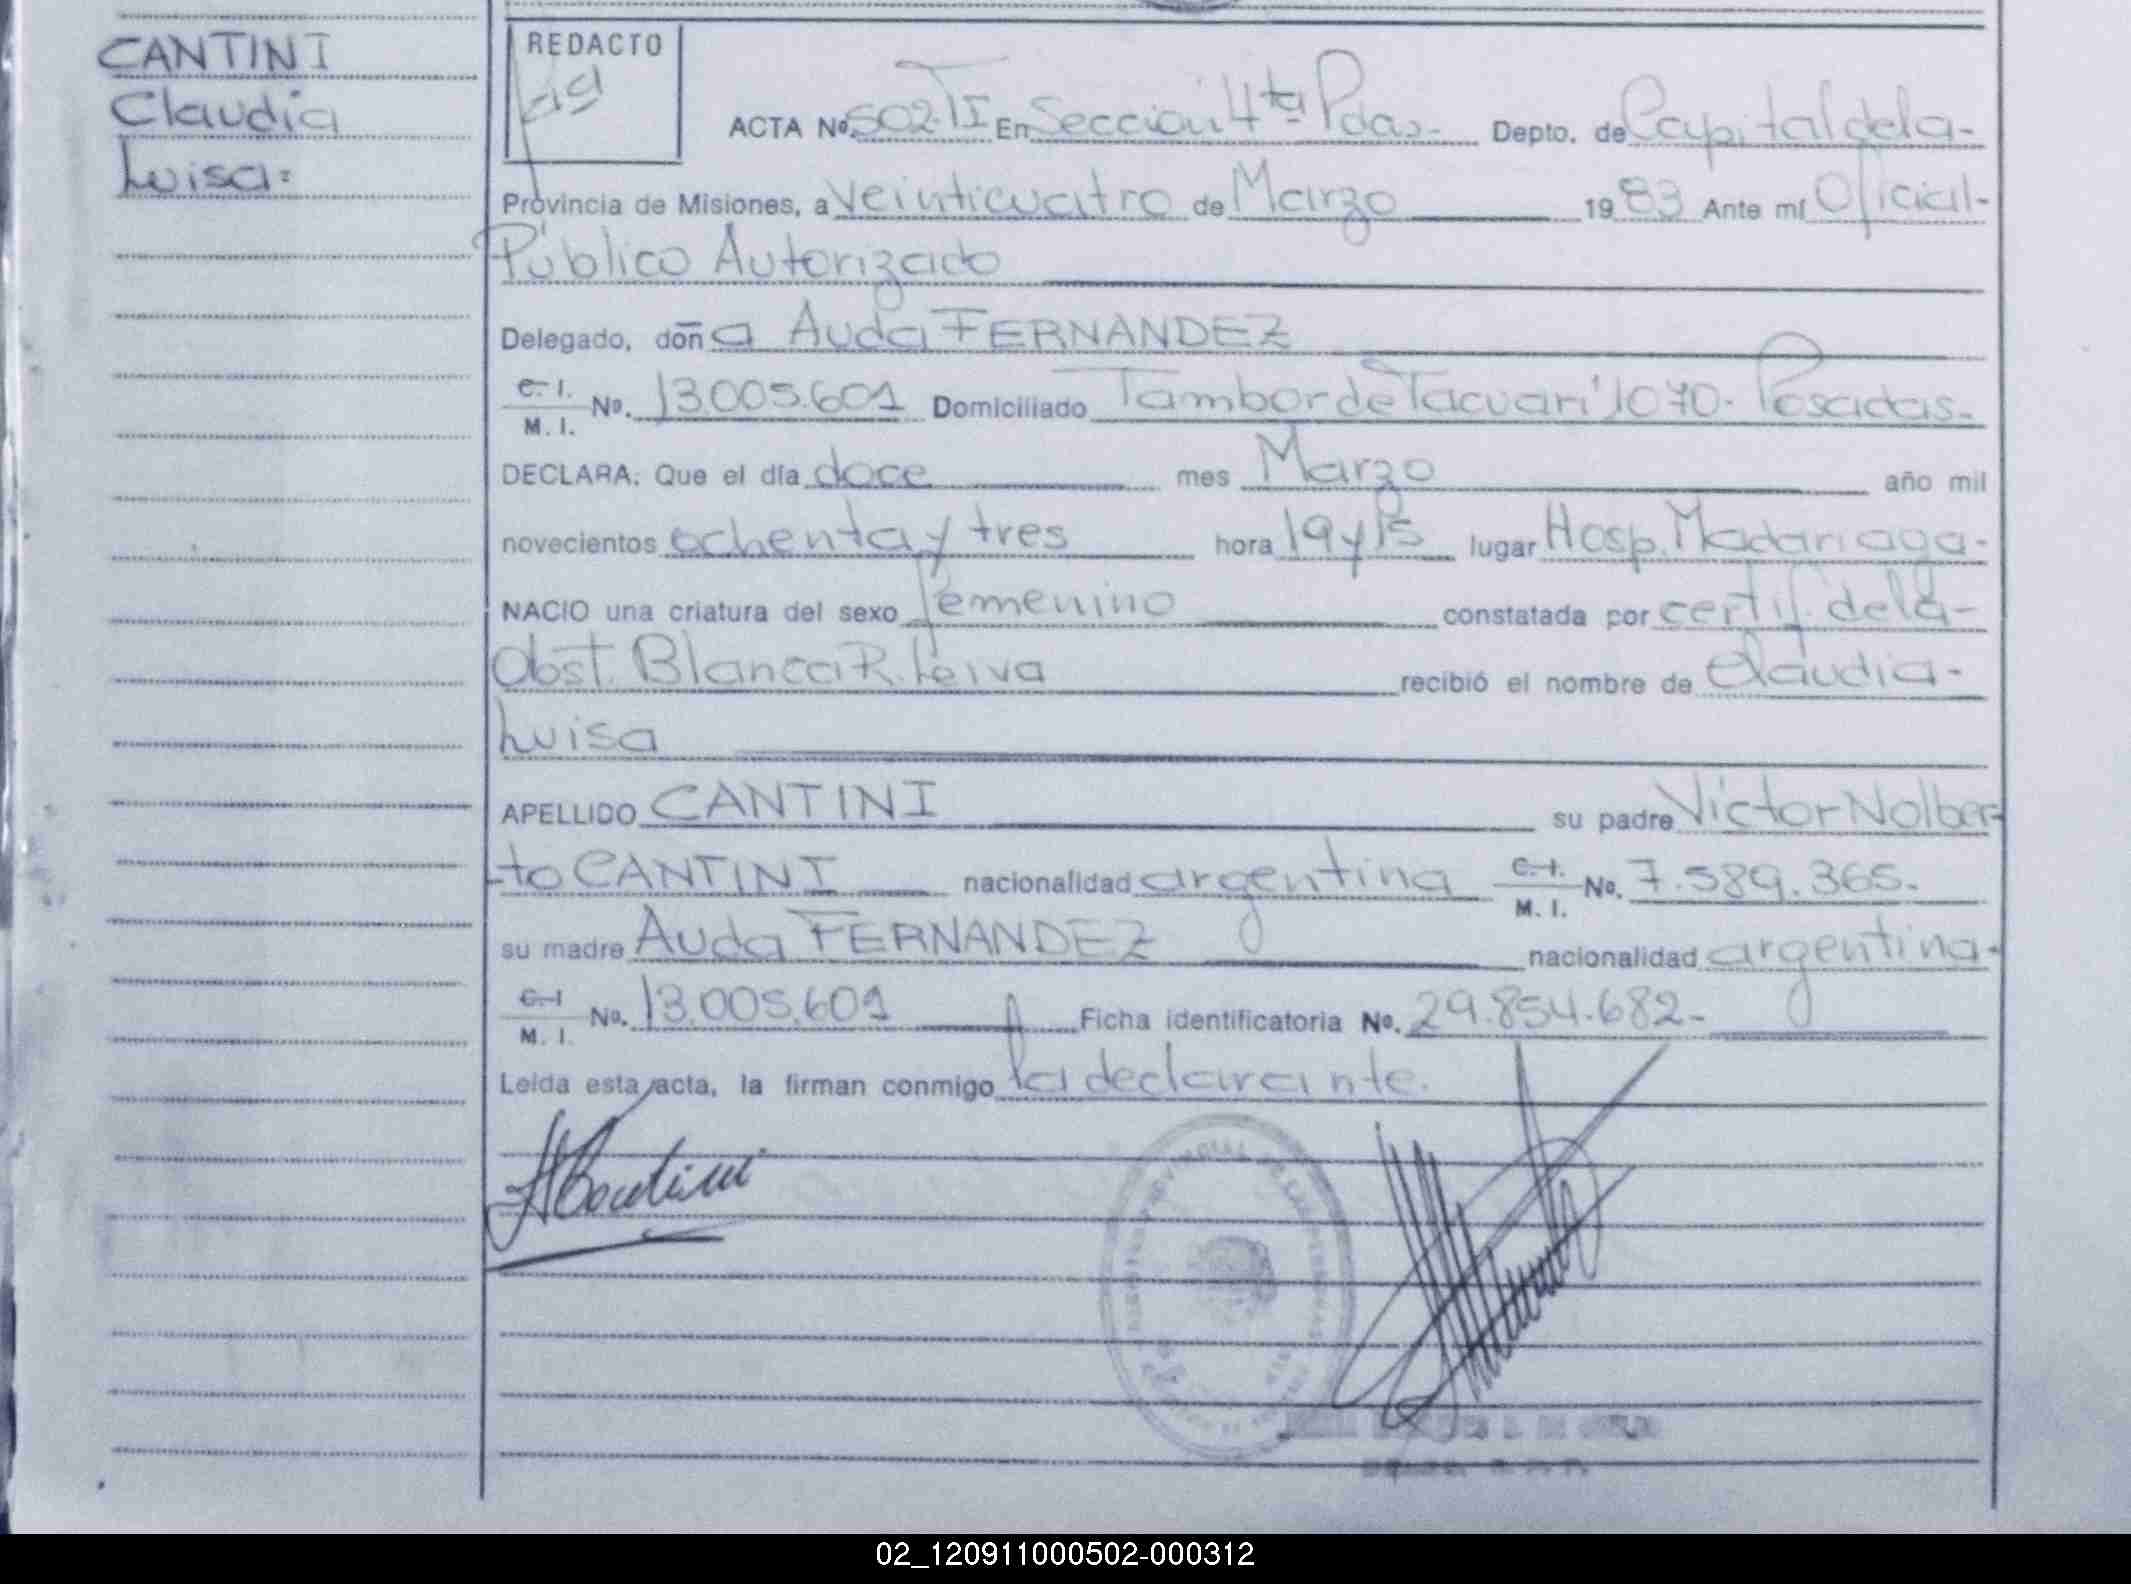 CANTINI
Claudia
Luisa=
REDACTO
ACTA Nº 502.TI En Sección 4ta Pdas.- Depto. de Capital de la-
Provincia de Misiones, a Veinticuatro de Marzo 1983 Ante mí Oficial-
Público Autorizado
Delegado, doña Auda FERNANDEZ
C. I. M. I. Nº. 13.005.601 Domiciliado Tambor de Tacuarí 1070- Posadas-
DECLARA: Que el día doce mes Marzo año mil
novecientos ochenta y tres hora 19 y 15 lugar Hosp. Madariaga-
NACIO una criatura del sexo femenino constatada por certif. de la-
Obst. Blanca R. Leiva recibió el nombre de Claudia-
Luisa
APELLIDO CANTINI su padre Victor Nolber-
-to CANTINI nacionalidad argentina C. I. M. I. Nº. 7.589.365-
su madre Auda FERNANDEZ nacionalidad argentina-
C. I M. I. Nº. 13.005.601 Ficha identificatoria Nº. 29.854.682-
Leída esta acta, la firman conmigo la declarante.
02_120911000502-000312